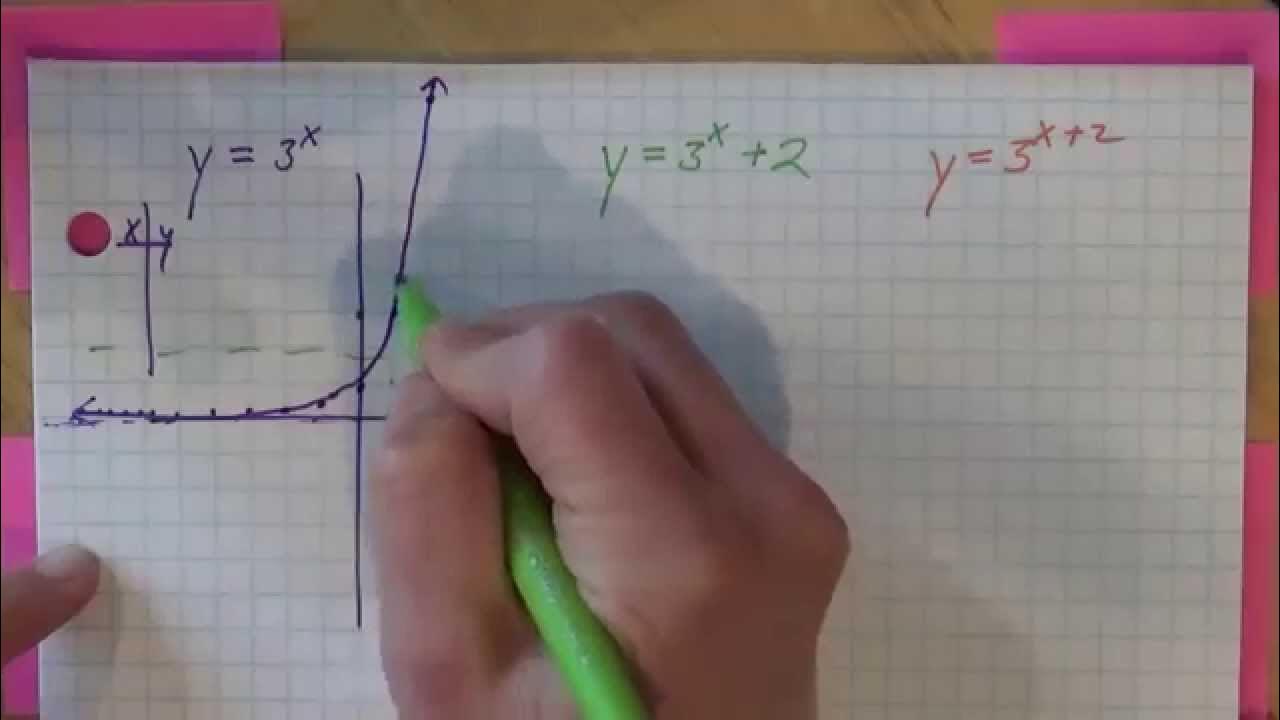 y = 3^x
y = 3^x + 2
y = 3^{x+2}
x y